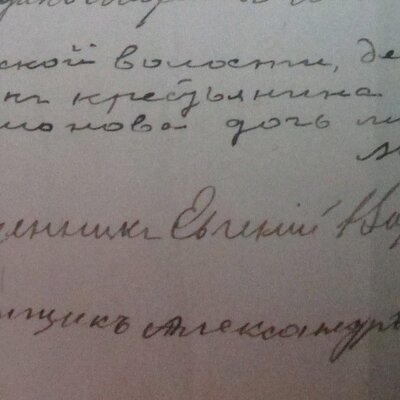 ской волости, де
нъ крестьянина
монова дочь
енникъ Евгений
щикъ Александръ